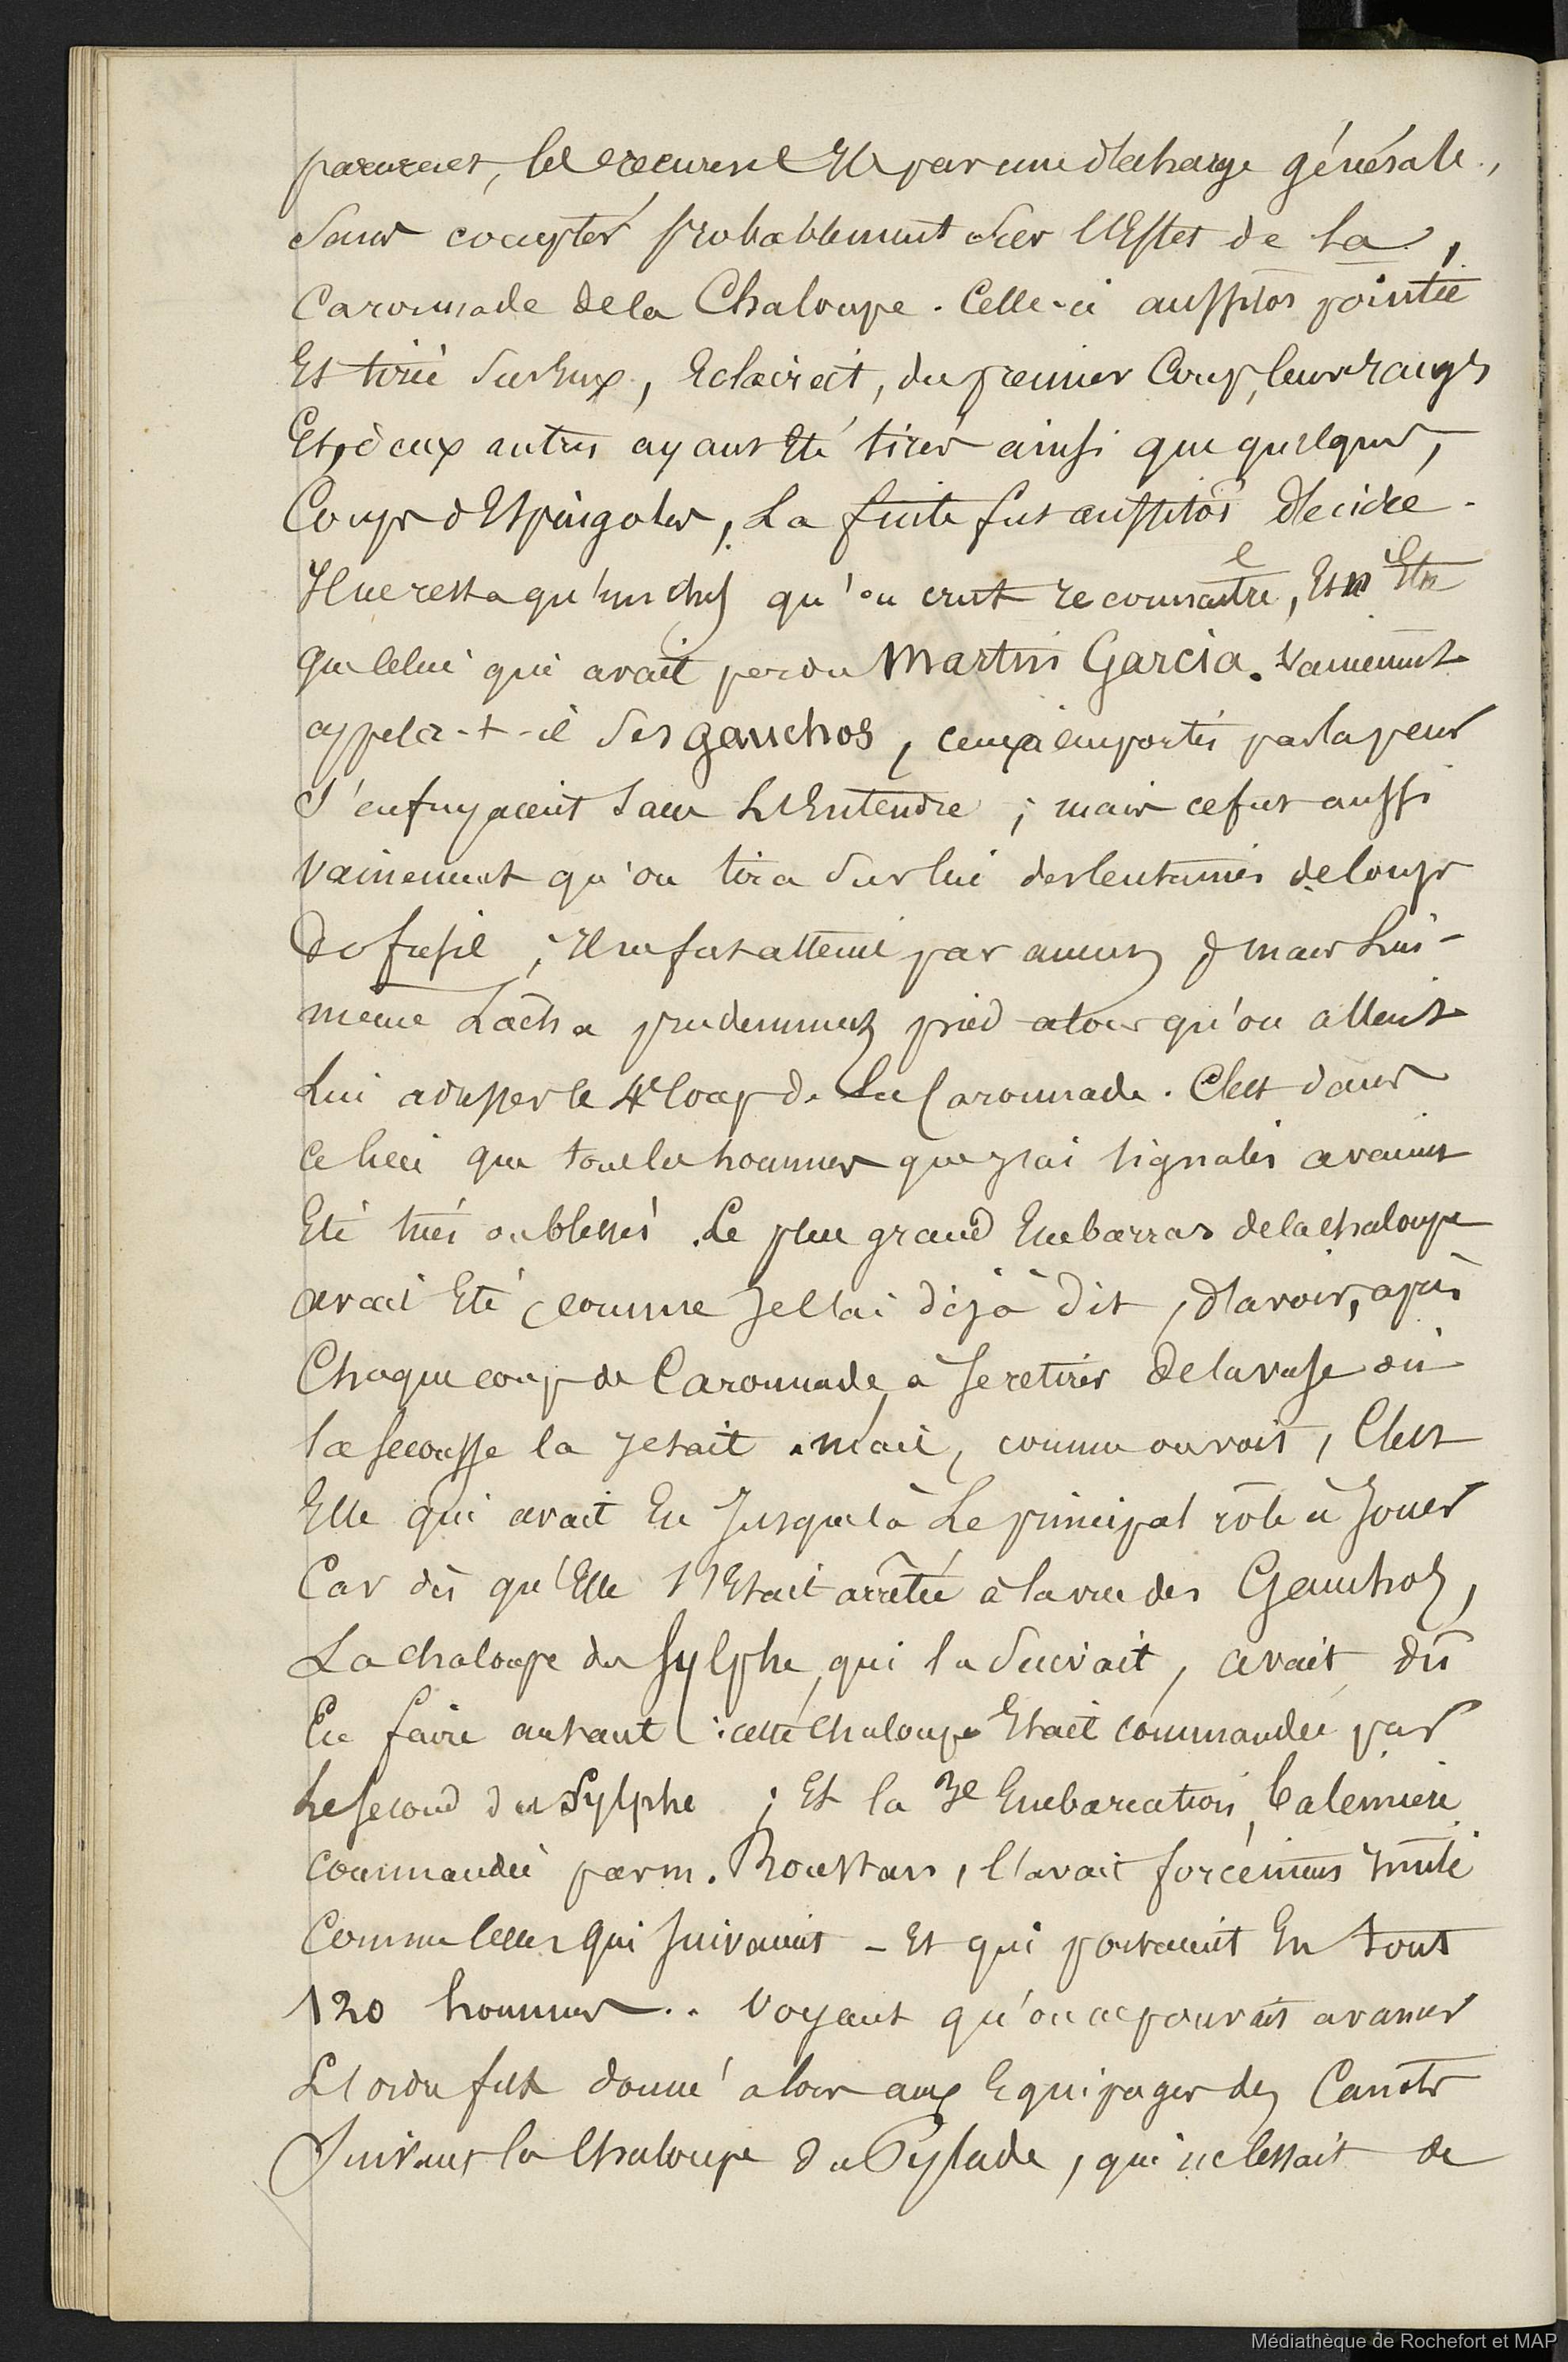 parurent, les reçurent Et par une décharge générale,
Sans compter probablement sur l'Effet de la,
Caronnade de la Chaloupe. Celle-ci aussitôt pointée
Et tirée Sur Eux, Eclaircit, du premier Coup, leurs rangs
Et, deux autres ayant Eté tirés ainsi que quelques,
Coups d'Espingoles, La fuite fut aussitôt décidée.
Il ne resta qu'un chef qu'on crut reconnaitre, Et
que Celui qui avait perdu Martin Garcia. Vainement
appela-t-il Ses gauchos, ceux-ci emportés par la peur
S'enfuyaient Sans L'Entendre ; mais ce fut aussi
Vainement qu'on tira Sur lui des Centaines de Coups
De fusil ; Il ne fut atteint par aucun, mais Lui-
même Lâcha prudemment pied alors qu'on allait
Lui adresser le 4e Coup de La Caronnade. C'est dans
Ce lieu que tous les hommes que j'ai signalés avaient
Eté tués ou blessés. Le plus grand Embarras de la chaloupe
avait Eté comme Je l'ai déjà dit, d'avoir, après
Chaque coup de Caronnade, à Se retirer De la vase où
la Secousse la Jetait. mais, comme on voit, C'est
Elle qui avait Eu Jusque là Le principal rôle à Jouer
Car dès qu'Elle s'Etait arrêtée à la vue des Gauchos,
La chaloupe du Sylphe, qui la Suivait, avait dû
En faire autant : cette Chaloupe Etait commandée par
Le Second du Sylphe ; Et la 3e Embarcation, baleinière
Commandée par m. Roustan, l'avait forcément Imité
Comme Celles qui Suivaient - Et qui portaient En tout
120 hommes.. Voyant qu'on ne pouvait avancer
L'ordre fut donné alors aux Equipages des Canots
Suivant la Chaloupe Du Pylade, qui ne Cessait de
Médiathèque de Rochefort et MAP